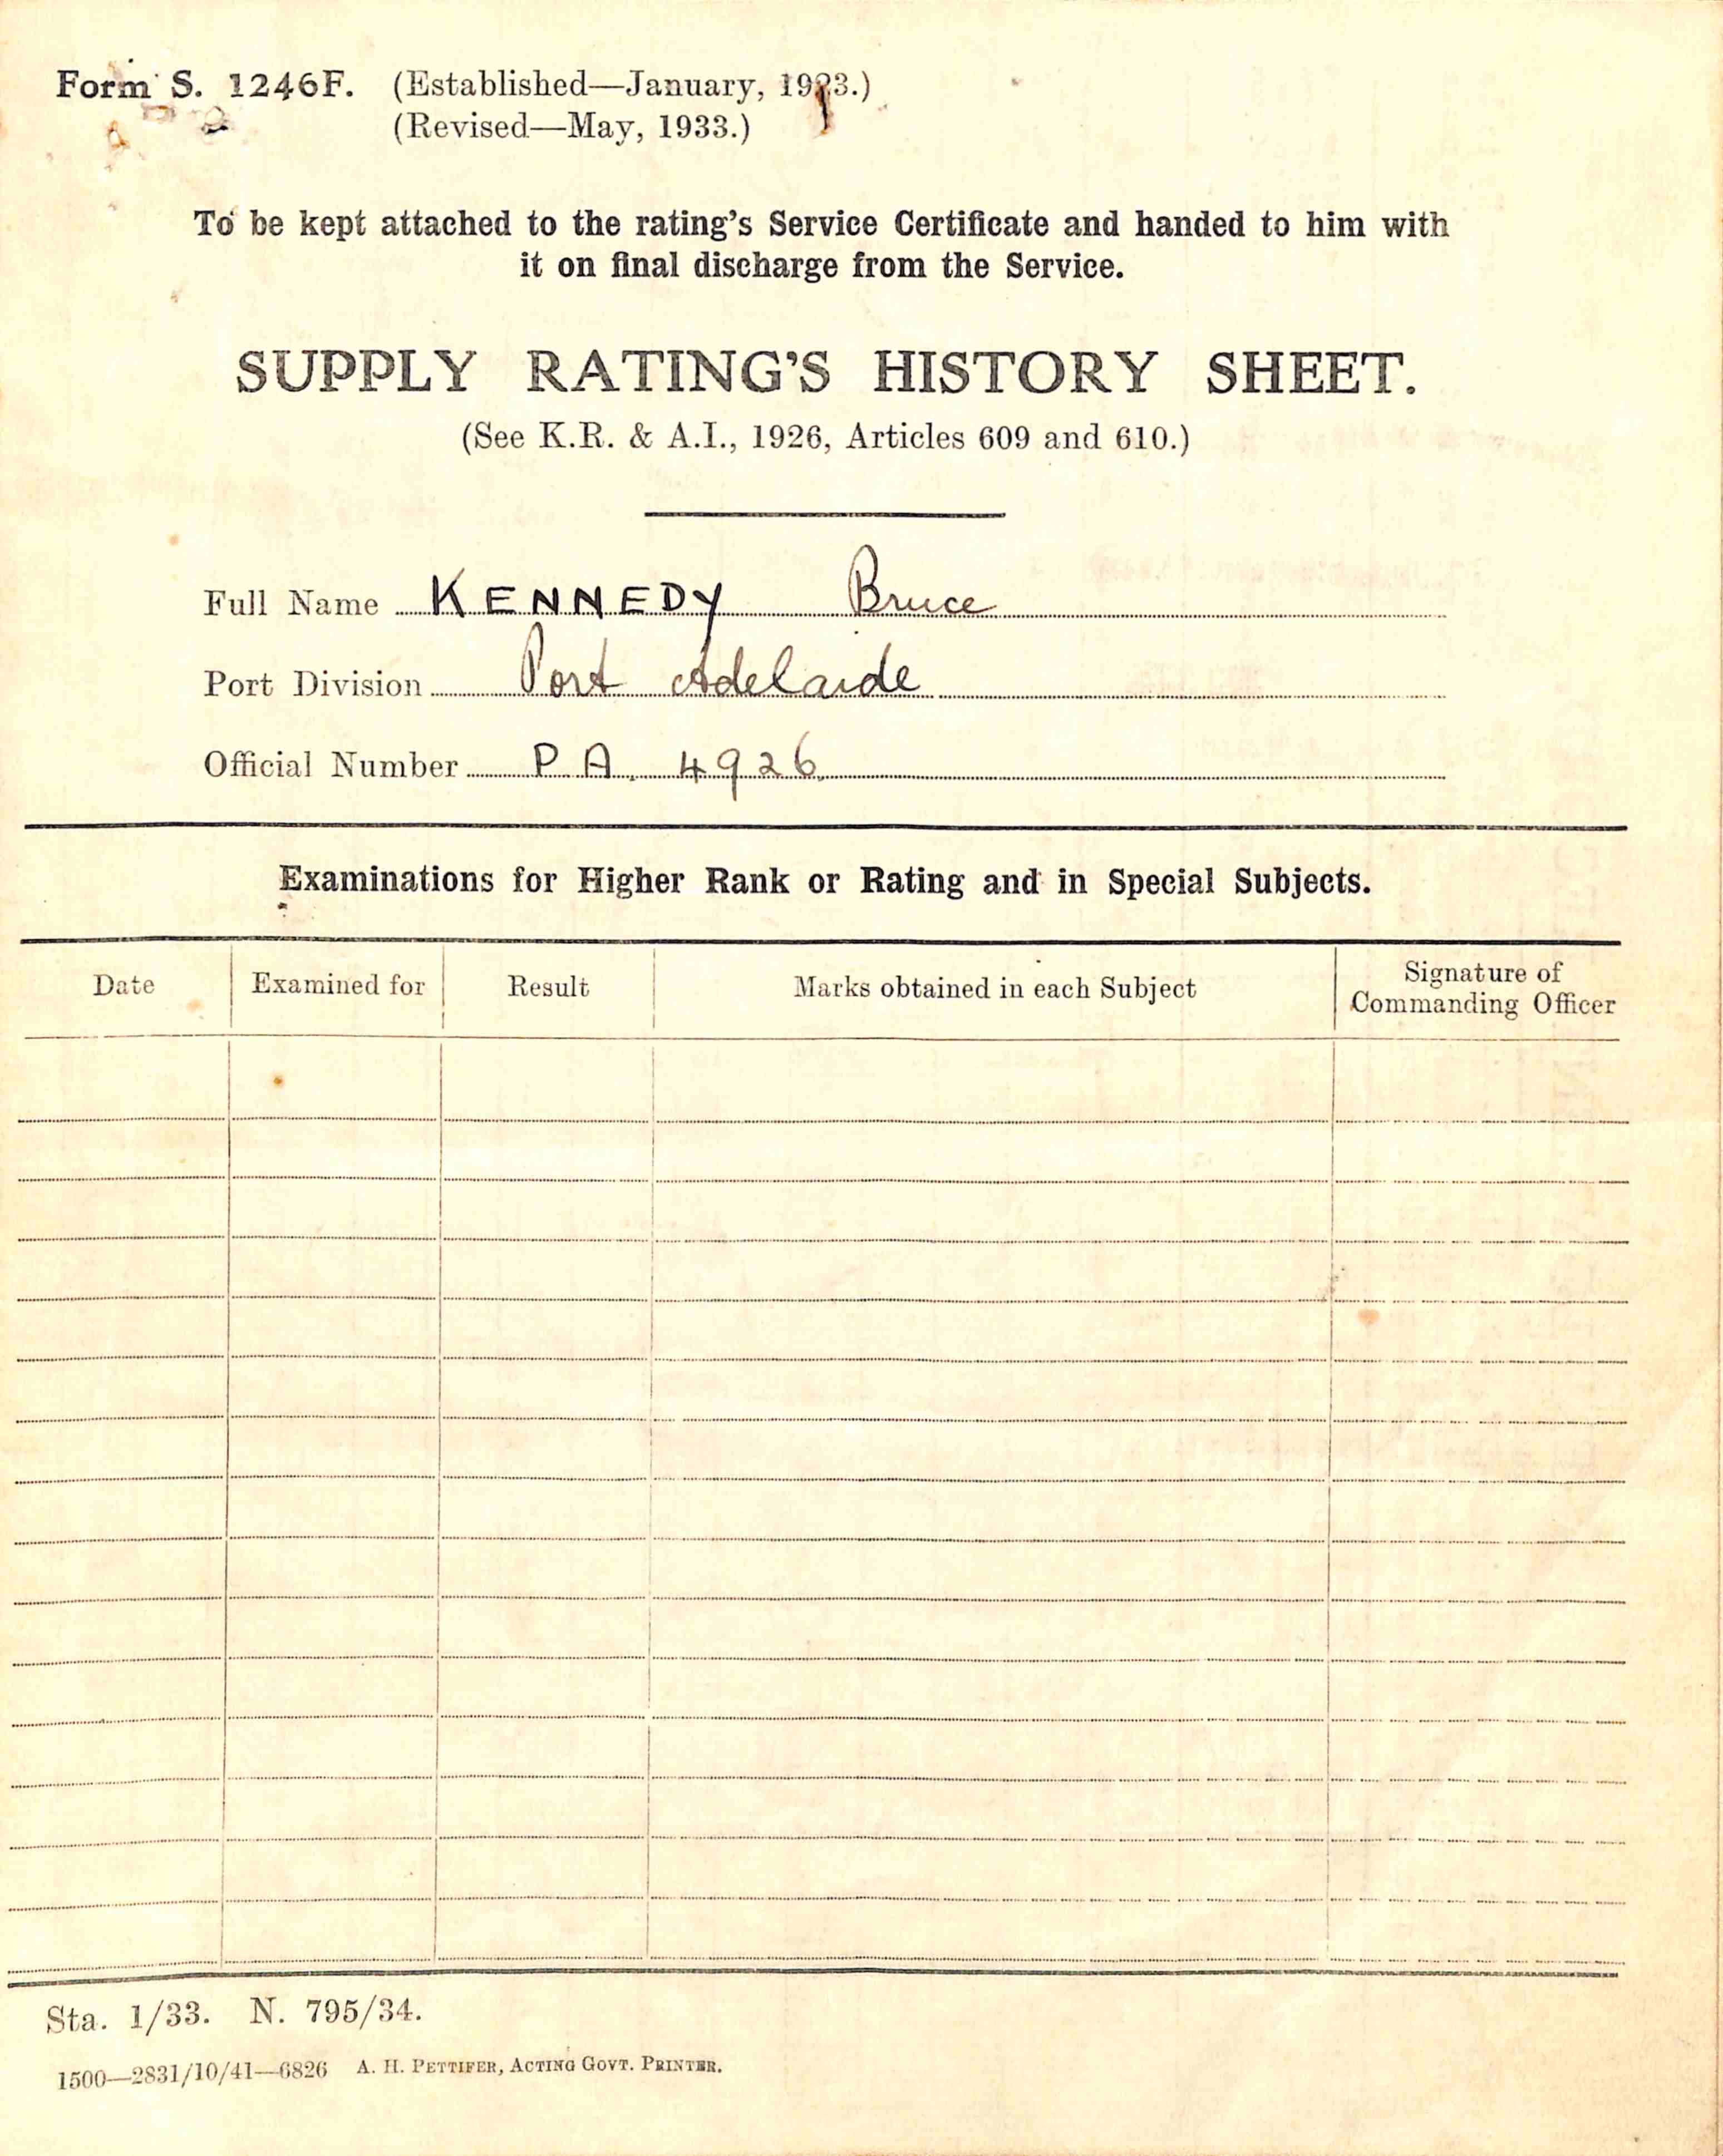 Form S. 1246F. (Established—January, 1923.)
(Revised—May, 1933.)
To be kept attached to the rating's Service Certificate and handed to him with
it on final discharge from the Service.
SUPPLY RATING'S HISTORY SHEET.
(See K.R. & A.I., 1926, Articles 609 and 610.)
Full Name KENNEDY Bruce
Port Division Port Adelaide
Official Number P A. 4926
Examinations for Higher Rank or Rating and in Special Subjects.
Date Examined for Result Marks obtained in each Subject Signature of
Commanding Officer
Sta. 1/33. N. 795/34.
1500—2831/10/41—6826 A. H. PETTIFER, ACTING GOVT. PRINTER.